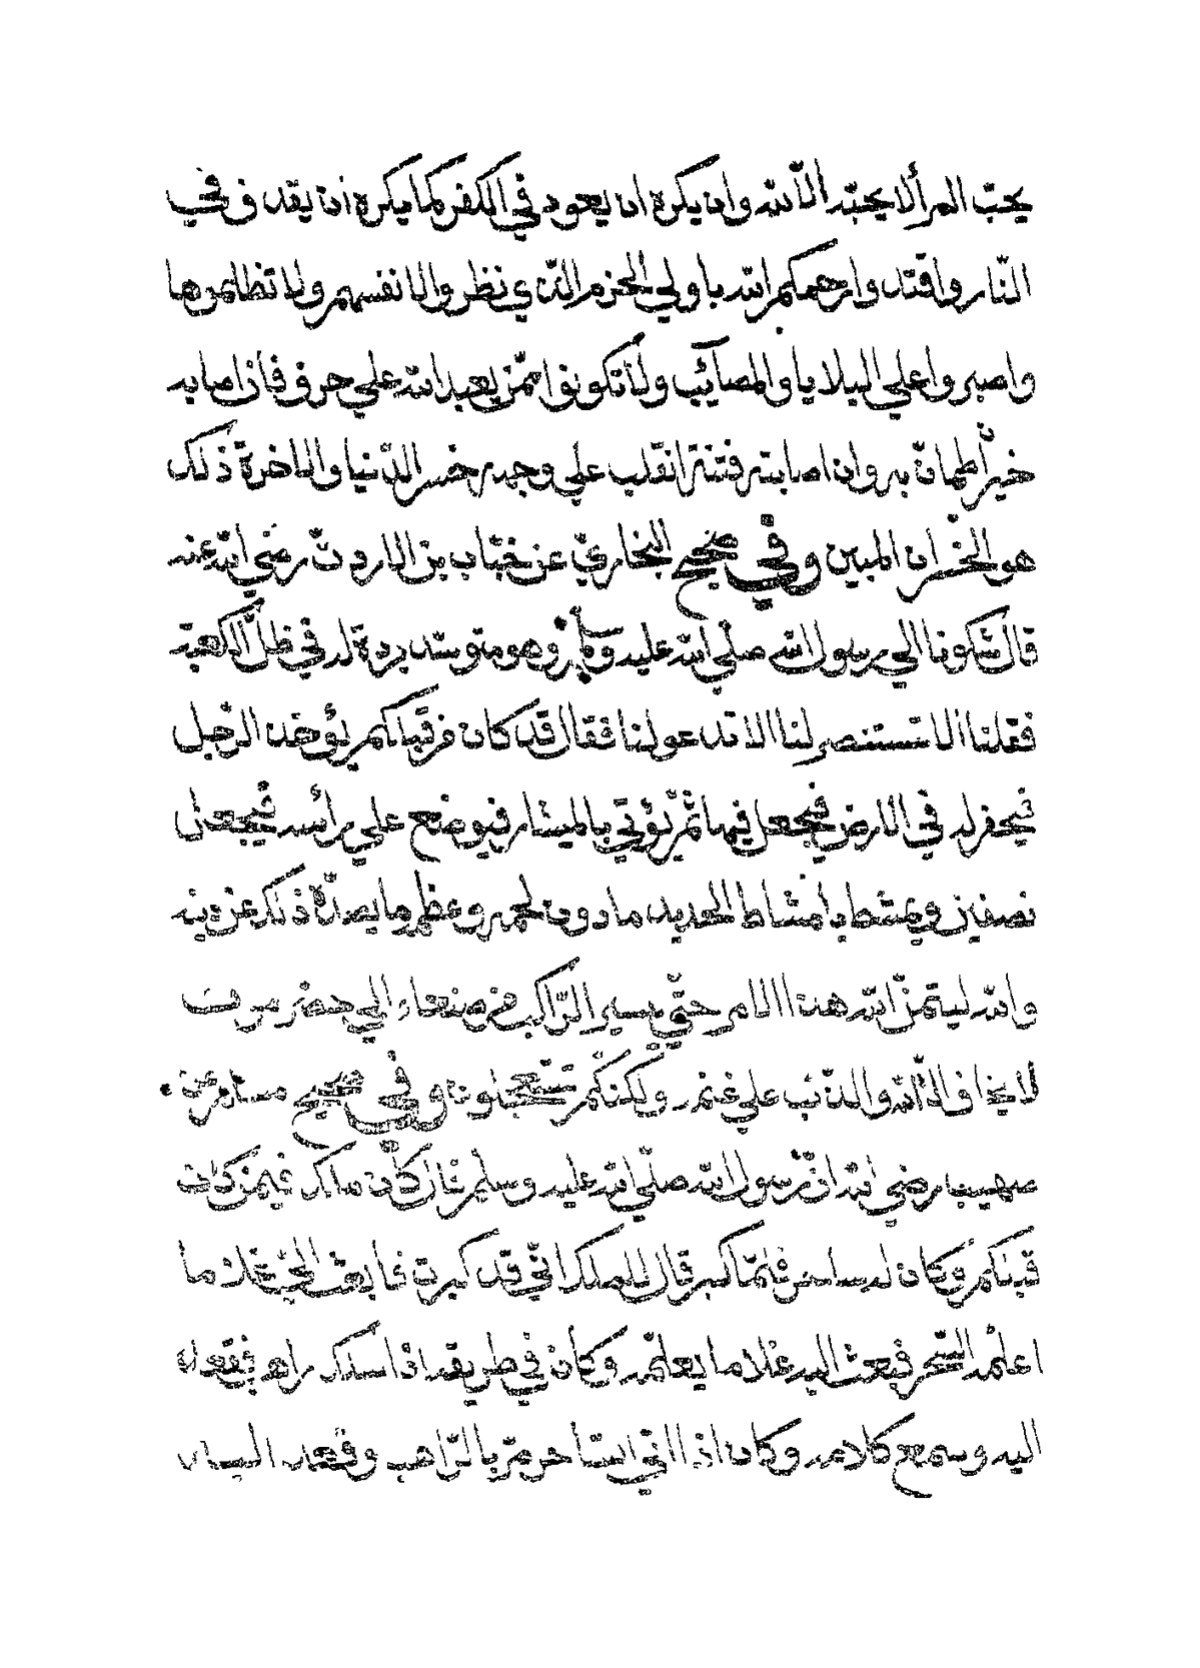 يحبّ المرأ لا يحبّه الّا للّه وان يكره ان يعود في الكفر كما يكره ان يقذف في
النّار واقتد وارحمكم اللّه باولي الحزم الذّي نظروا لانفسهم ولا تظلموها
واصبروا علي البلايا والمصآئب ولا تكونوا ممّن يعبد اللّه علي حرف فأذا صابه
خيرٌ اطمانّ به وان اصابته فتنة انقلب علي وجهه خسر الدّنيا والاخرة ذلك
هو الخسران المبين وفي صحيح البخاريّ عن خبّاب بن الاردتّ رضي اللّه عنه
قال شكونا الي رسول اللّه صلّي اللّه عليه وسلّم وهو متوسّد بردة له في ظلّ الكعبة
فقلنا الا تستنصر لنا الا تدعو لنا فقال قد كان من قبلكم يؤخذ الرّجل
فيحفر له في الارض فيجعل فيها ثمّ يؤتي بالميشار فيوضع علي رأسه فيجعل
نصفين ويمشط بامشاط الحديد ما دون لحمه وعظمه ما يصدّه ذلك عن دينه
واللّه ليتمّنّ اللّه هذا الامر حتّي يسير الرّاكب من صنعاء الي حضرموت
لا يخاف الّا اللّه والذئب علي غنمه ولكنّكم تستعجلون وفي صحيح مسلم عن
صهيب رضي اللّه انّ رسول اللّه صلّي اللّه عليه وسلّم قال كان ملك فيمن كان
قبلكم وكان له ساحر فلمّا كبر قال للملك انّي قد كبرت فابعث الي غلاما
اعلّمه السّحر فبعث اليه غلاما يعلّمه وكان في طريقه اذا سلك راهب فقعد
اليه وسمع كلامه وكان اذا اتي السّاحر مرّ بالرّاهب وقعد اليه